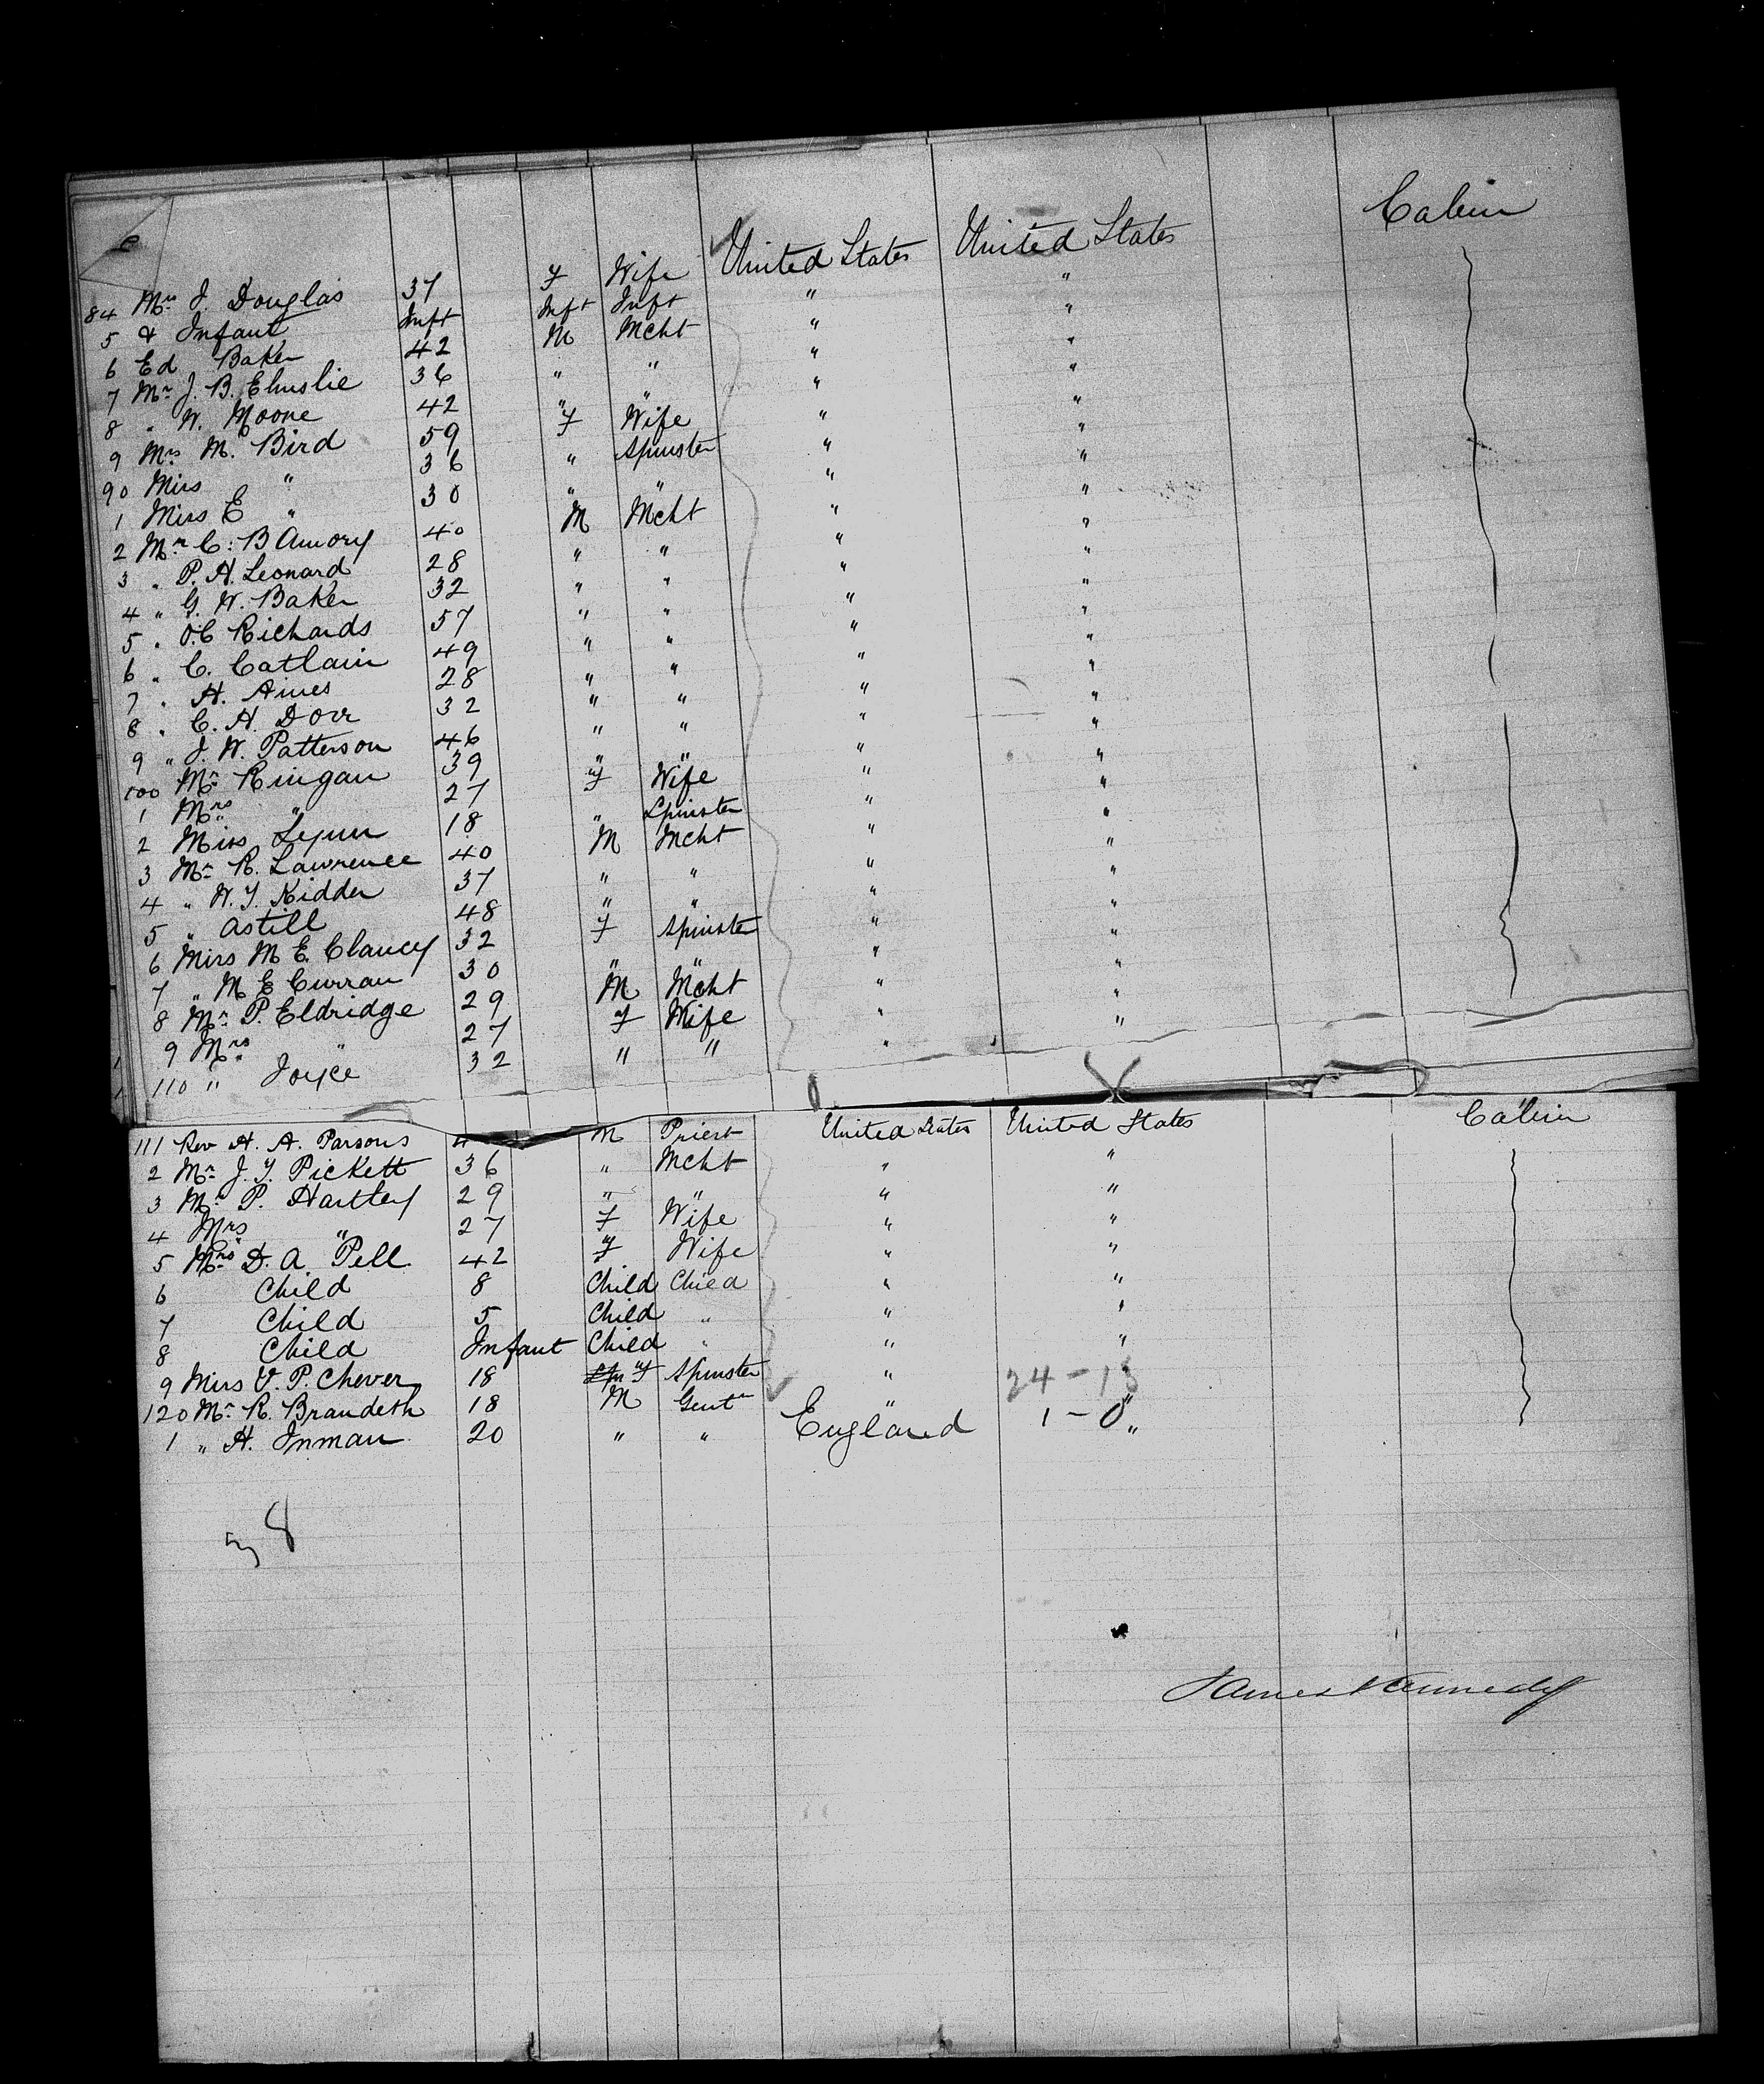 Cabin
84 Mrs J. Douglas 37 F Wife United States United States
5 & Infant Inft Inft Inft " "
6 Ed Baker 42 M Mcht " "
7 Mr J. B. Elmslie 36 " " " "
8 " W. Moore 42 " " " "
9 Mrs M. Bird 59 F Wife " "
90 Miss " 36 " Spinster " "
1 Miss E " 30 " " " "
2 Mr C: B Amory 40 M Mcht " "
3 " P. H. Leonard 28 " " " "
4 " G. W. Baker 32 " " " "
5 " O. C Richards 57 " " " "
6 " C. Catlain 49 " " " "
7 " H. Aines 28 " " " "
8 " C. H. Dorr 32 " " " "
9 " J. W. Patterson 46 " " " "
100 Mr Ringan 39 " " " "
1 Mrs " 27 F Wife " "
2 Miss Lynn 18 " Spinster " "
3 Mr R. Lawrence 40 M Mcht " "
4 " W. J. Kidder 37 " " " "
5 " Astill 48 " " " "
6 Miss M E. Clancy 32 F Spinster " "
7 " M E Curran 30 " " " "
8 Mr P. Eldridge 29 M Mcht " "
9 Mrs " 27 F Wife " "
110 " Joyce 32 " " " "
111 Rev H. A. Parsons 4 M Priest United States United States Cabin
2 Mr J. J. Pickett 36 " Mcht " "
3 Mr P. Hartley 29 " " " "
4 Mrs " 27 F Wife " "
5 Mrs D. A. Pell 42 F Wife " "
6 Child 8 Child Child " "
7 Child 5 Child " " "
8 Child Infant Child " " "
9 Miss V. P. Chever 18 F Spinster " 24-13
120 Mr R. Brandeth 18 M Gentn " " 1-0
1 " H. Inman 20 " " England "
38
James Kennedy